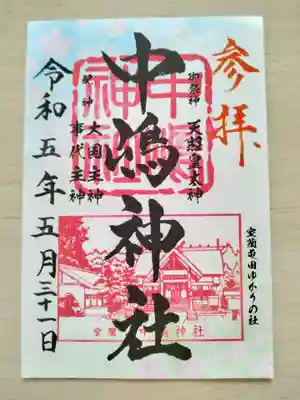 参拝
御祭神 天照皇大神
中嶋神社
配神 大国主神
事代主神
令和五年五月三十一日
室蘭屯田ゆかりの社
中嶋神社
室蘭 中嶋神社